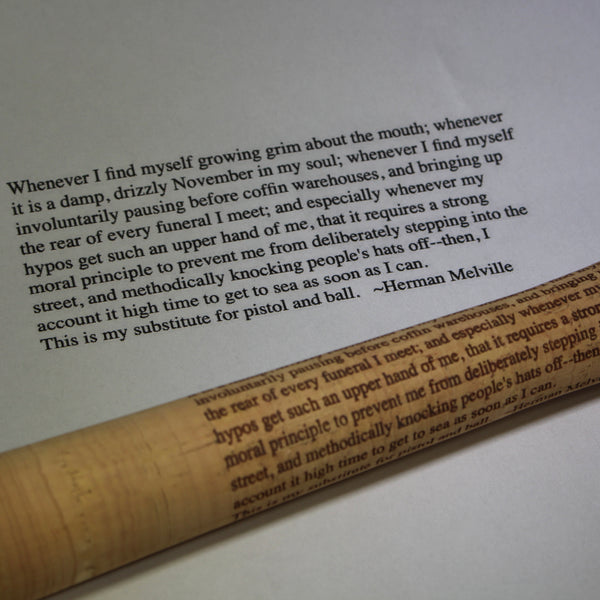 Whenever I find myself growing grim about the mouth; whenever
it is a damp, drizzly November in my soul; whenever I find myself
involuntarily pausing before coffin warehouses, and bringing up
the rear of every funeral I meet; and especially whenever my
hypos get such an upper hand of me, that it requires a strong
moral principle to prevent me from deliberately stepping into the
street, and methodically knocking people's hats off--then, I
account it high time to get to sea as soon as I can.
This is my substitute for pistol and ball. ~Herman Melville
involuntarily pausing before coffin warehouses, and bringing
the rear of every funeral I meet; and especially whenever my
hypos get such an upper hand of me, that it requires a strong
moral principle to prevent me from deliberately stepping
street, and methodically knocking people's hats off--then,
account it high time to get to sea as soon as I can.
This is my substitute for pistol and ball. ~Herman